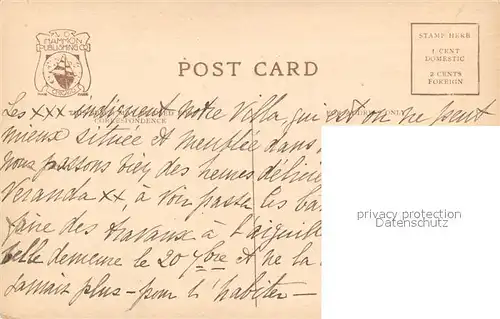 V.O.
HAMMON
PUBLISHING CO.
CHICAGO
POST CARD
STAMP HERE
1 CENT
DOMESTIC
2 CENTS
FOREIGN
CORRESPONDENCE
ONLY
Les xxx indiquent notre Villa, qui est on ne peut
mieux située et meublée dans
nous passons bien des heures
Veranda xx, à voir passer les
faire des travaux à l'aiguille
belle demeure le 20 7bre et ne la
jamais plus - pour l'habiter -
privacy protection
Datenschutz